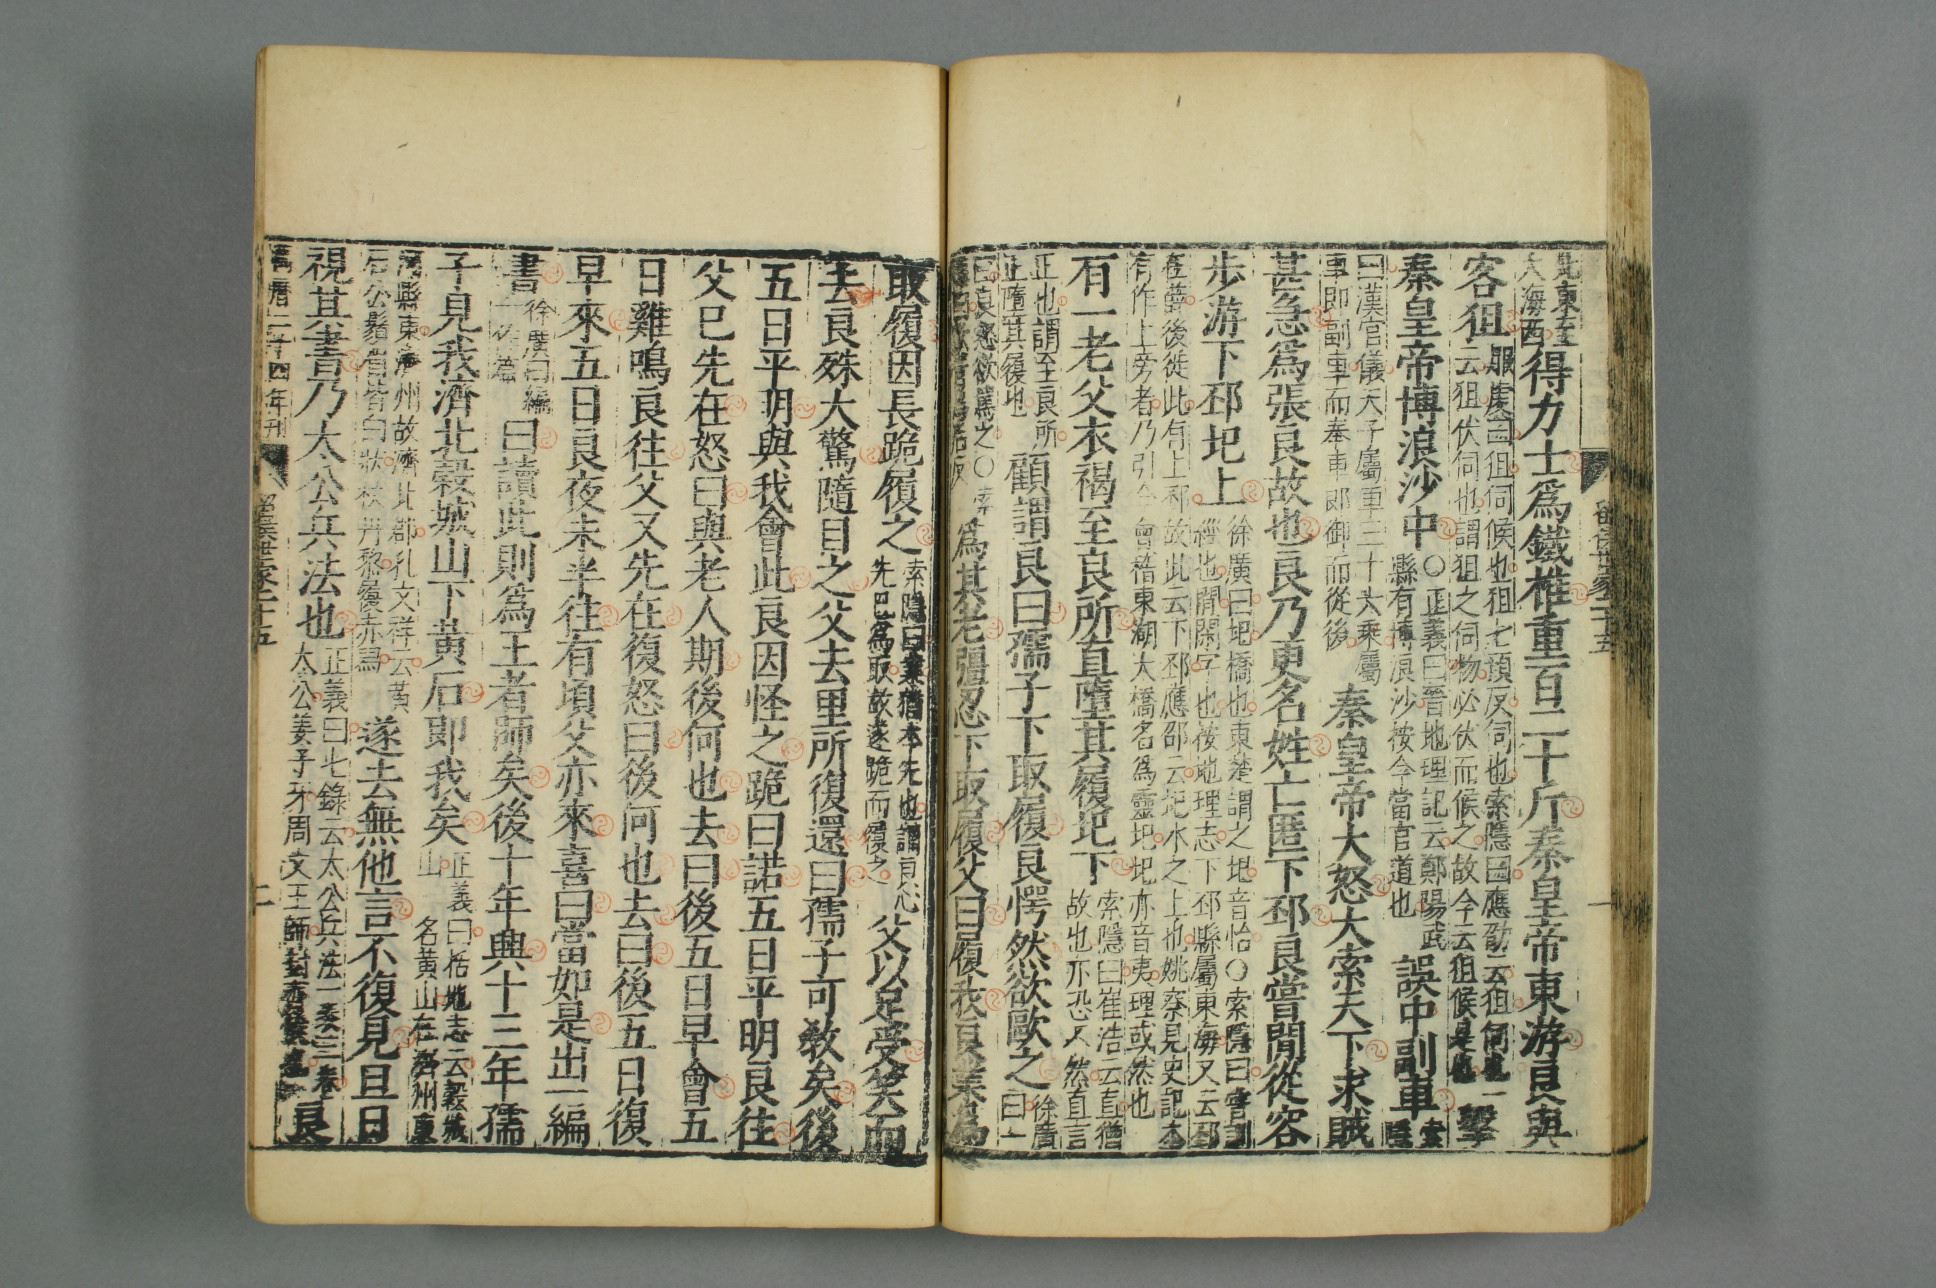 北東至大海西得力士爲鐵椎重百二十斤秦皇帝東游良與
客狙服虔曰狙伺候也狙七預反伺也索隱曰應劭云狙伺也一云狙伏伺也謂狙之伺物必伏而候之故今云狙候是也擊
秦皇帝博浪沙中〇正義曰晉地理記云鄭陽武縣有博浪沙按今當官道也誤中副車索隱
曰漢官儀天子屬車三十六乘屬車即副車而奉車郎御而從後秦皇帝大怒大索天下求賊
甚急爲張良故也良乃更名姓亡匿下邳良嘗閒從容
步游下邳圯上徐廣曰圯橋也東楚謂之圯音怡〇索隱曰嘗訓經也閒閑字也按地理志下邳縣屬東海又云邳
在薛後徙此有上邳故此云下邳應邵云圯水之上也姚察見史記本
有作土旁者乃引今會稽東湖大橋名爲靈圯圯亦音夷理或然也
有一老父衣褐至良所直墮其履圯下索隱曰崔浩云直猶故也亦恐不然直言
正也謂至良所正墮其履也顧謂良曰孺子下取履良愕然欲歐之徐廣曰一
曰良怒欲罵之〇索爲其老彊忍下取履父曰履我良業爲
取履因長跪履之索隱曰業猶本先也謂良心先已爲取故遂跪而履之父以足受笑而
去良殊大驚隨目之父去里所復還曰孺子可敎矣後
五日平明與我會此良因怪之跪曰諾五日平明良往
父已先在怒曰與老人期後何也去曰後五日早會五
日雞鳴良往父又先在復怒曰後何也去曰後五日復
早來五日良夜未半往有頃父亦來喜曰當如是出一編
書徐廣曰編一作篇曰讀此則爲王者師矣後十年興十三年孺
子見我濟北穀城山下黃石即我矣正義曰括地志云穀城山名黃山在濟州東
阿縣東濟州故濟北郡孔文祥云黃石公鬚眉皆白狀杖丹黎履赤舄遂去無他言不復見旦日
視其書乃太公兵法也正義曰七錄云太公兵法一袠三卷太公姜子牙周文王師封齊侯也良
萬曆二十四年刊
留侯世家二十五
二